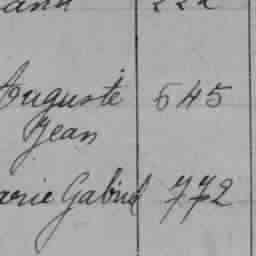 Auguste 545
Jean
arie Gabriel 772